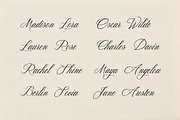 Madison Lora    Oscar Wilde
Lauren Rose    Charles Davin
Rachel Shine    Maya Angelou
Berlin Sovia    Jane Austen